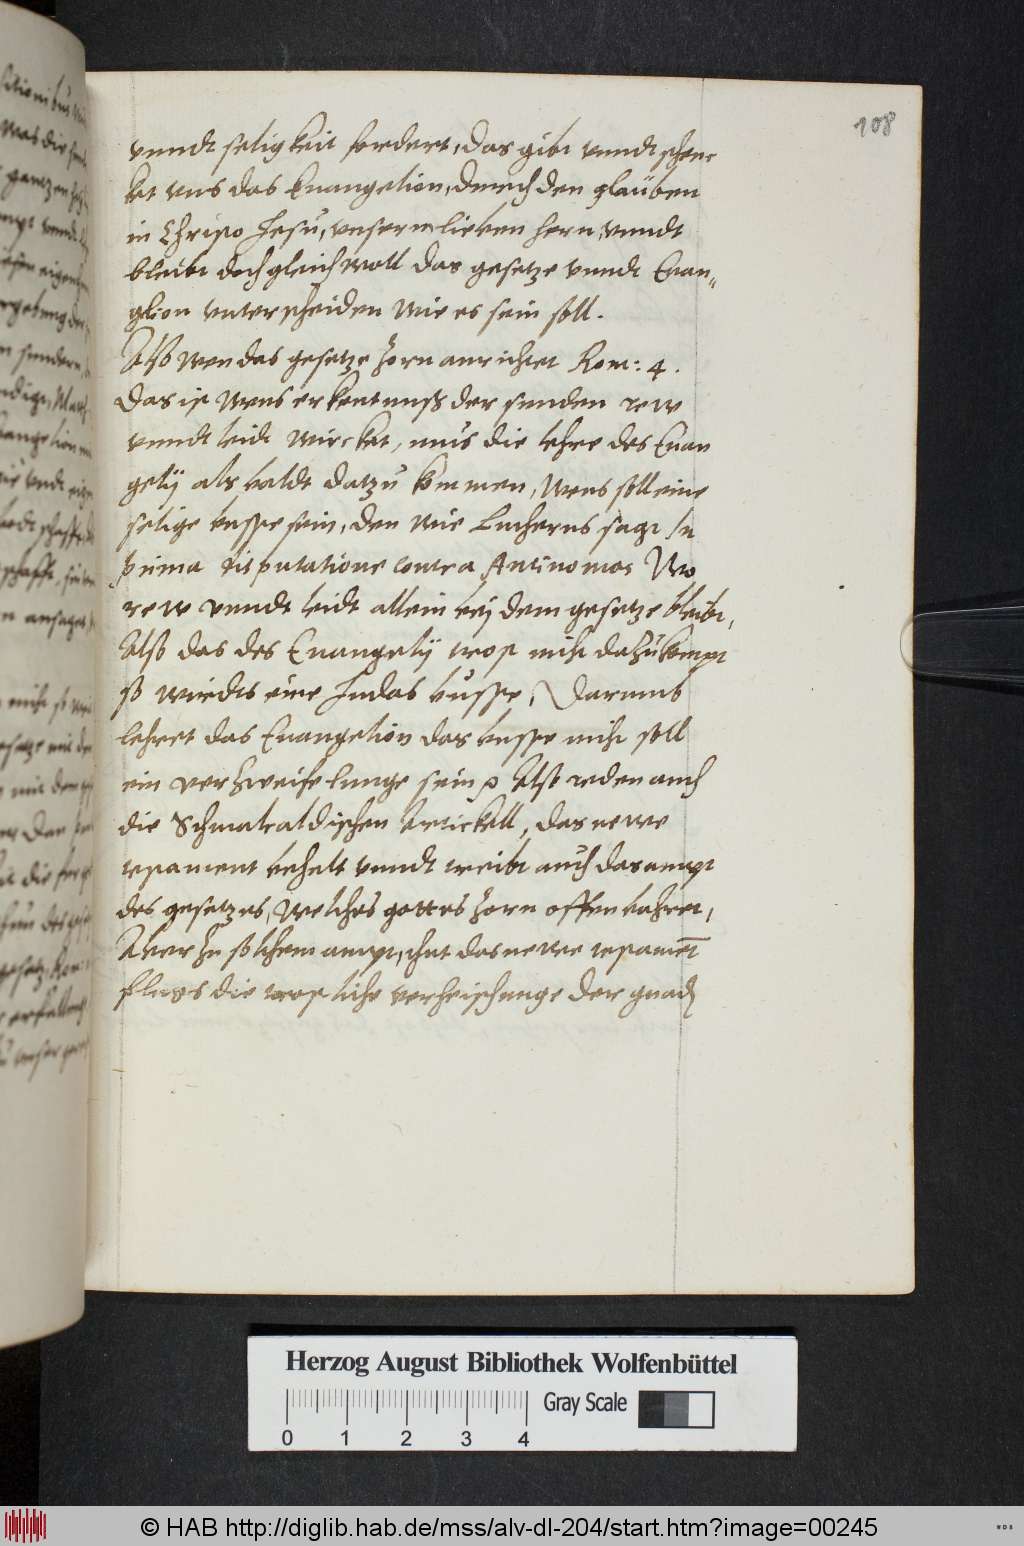 108
vnndt seligkeit fordert, das gibt vnndt schenc
ket vns das Euangelion, durch den glauben
in Christo Jesu, vnserm lieben hern, vnndt
bleibt doch gleichwoll das gesetze vnndt Euan„
glion vnterscheiden wie es sein soll.
Also wen das gesetze zorn anrichtet Rom: 4.
Das ist wens erkentnuß der sunden rew
vnndt leidt wircket, mus die lehre des Euan
gelÿ als baldt datzu kommen, wens soll eine
selige busse sein, den wie Lutherus sagt In
prima disputatione contra Antinomos Wo
rew vnndt leidt allein beÿ dem gesetze bleibt,
Also das des Euangelÿ trost nicht dazu kompt
so wirdts eine Judas busse, Darumb
lehret das Euangelion das busse nicht soll
ein verzweifelunge sein, Also reden auch
die Schmalcaldischen Artickell, das newe
testament behelt vnndt treibt auch das ampt
des gesetzes, welches gottes zorn offenbahret,
Aber zu solchem ampt, thut das newe testamēt
flugs die trostliche verheischunge der gnadē
Herzog August Bibliothek Wolfenbüttel
Gray Scale
0 1 2 3 4
© HAB http://diglib.hab.de/mss/alv-dl-204/start.htm?image=00245